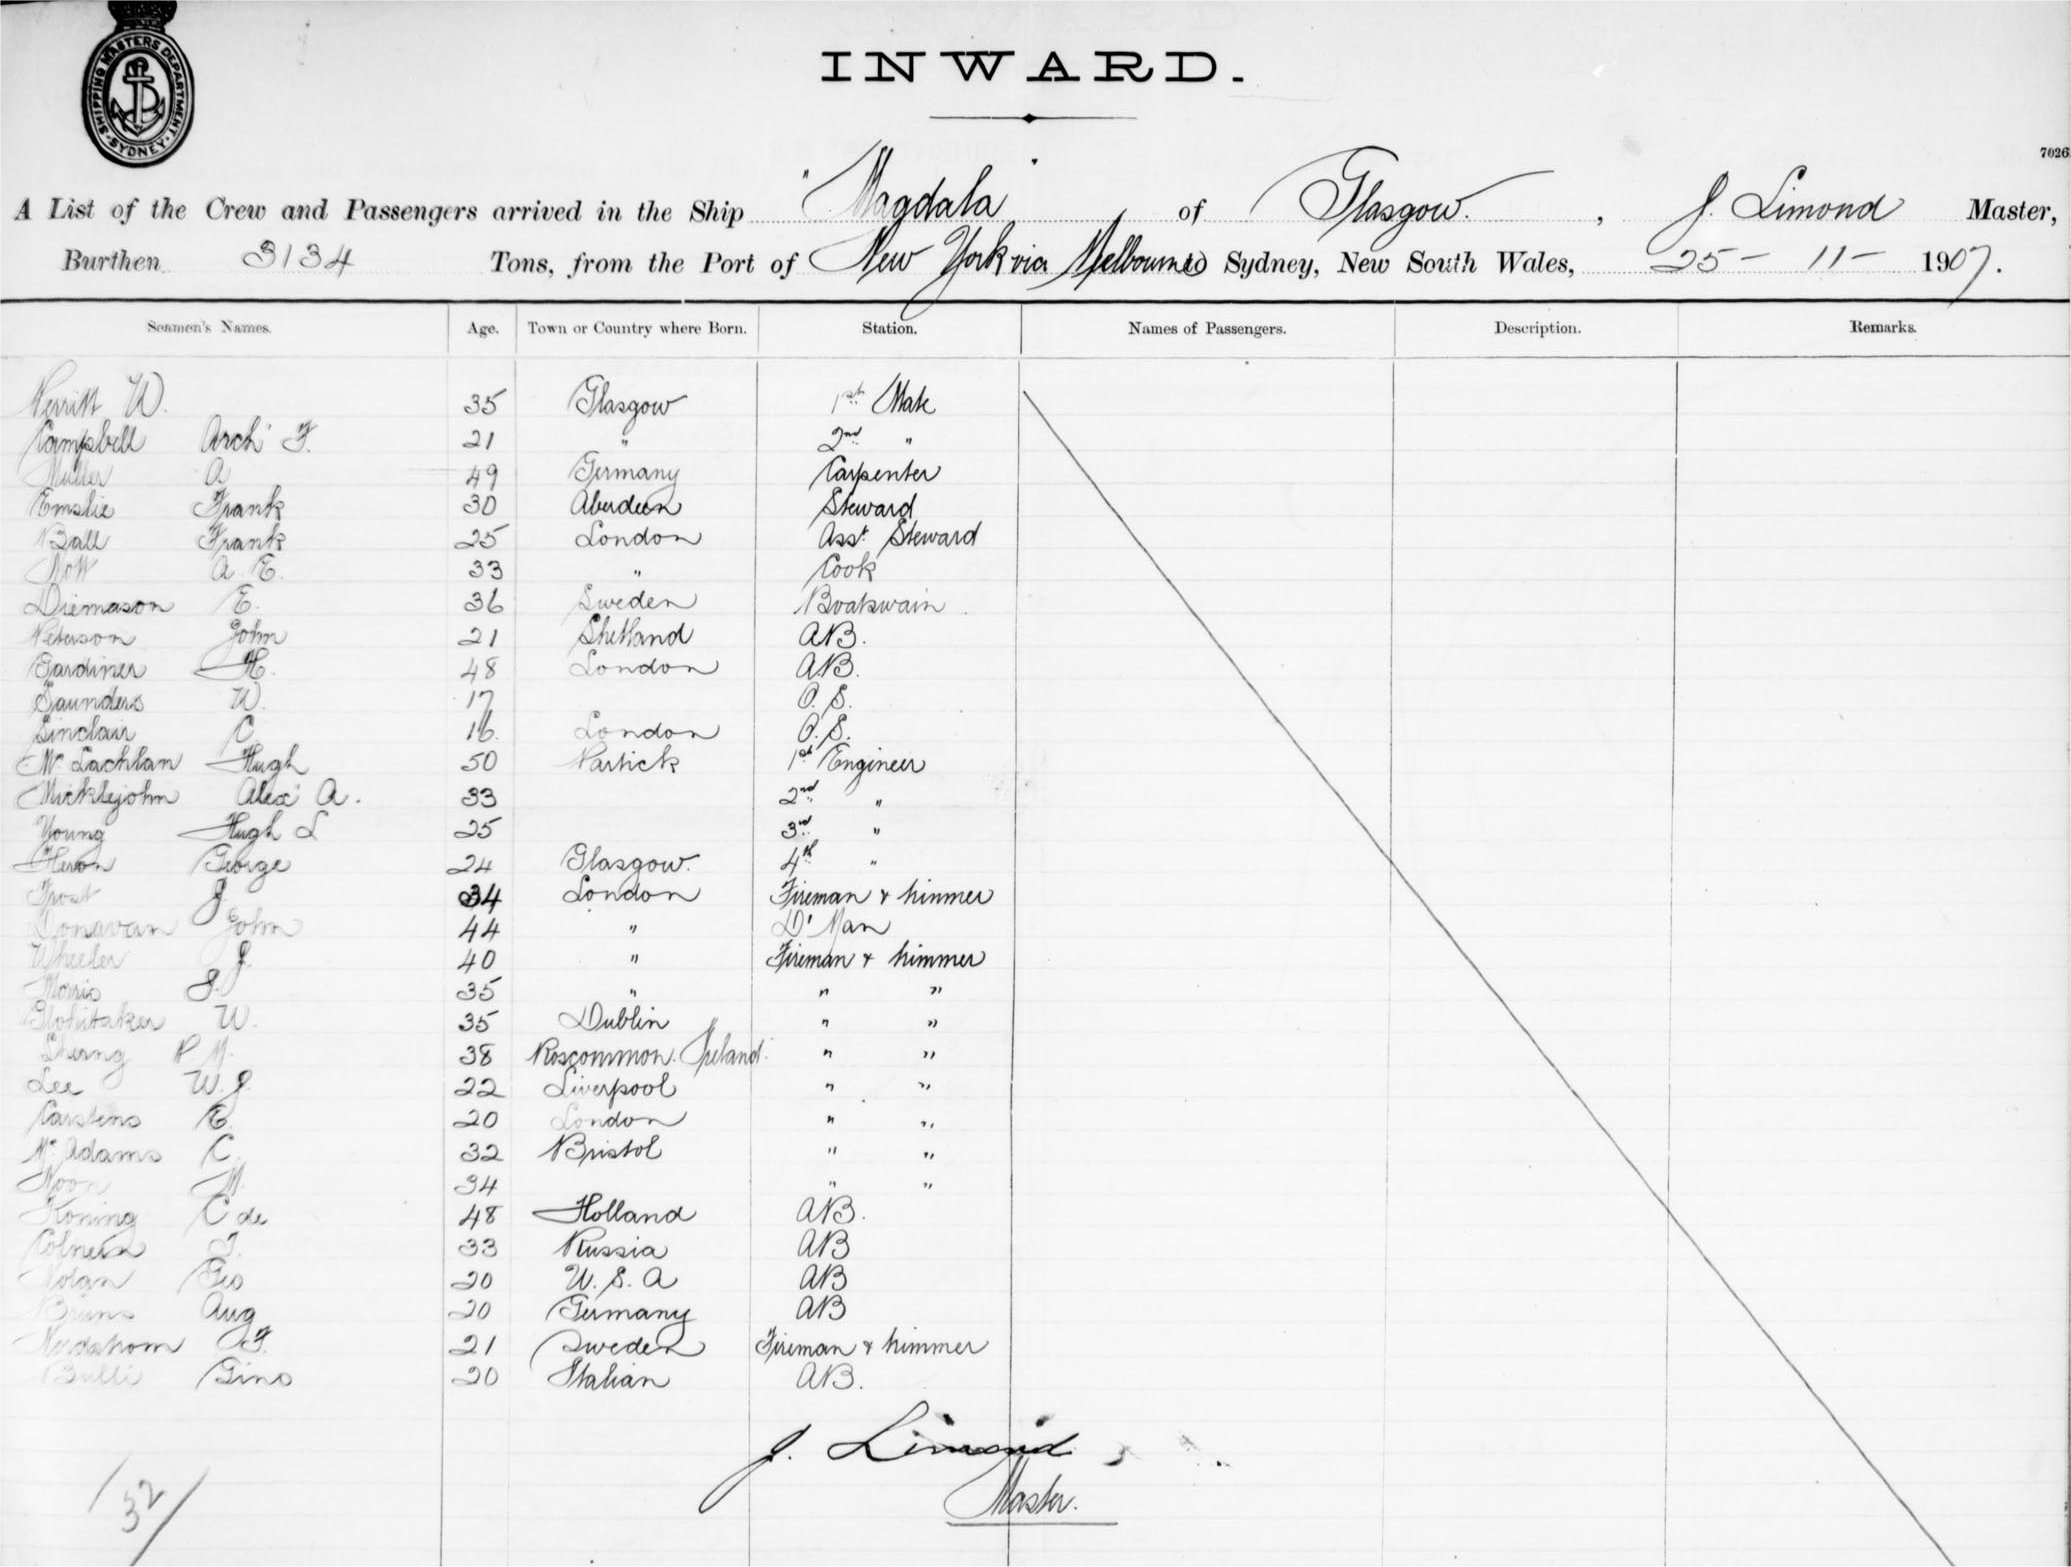 SHIPPING MASTERS DEPARTMENT. SYDNEY.
INWARD.
7026
A List of the Crew and Passengers arrived in the Ship "Magdala" of Glasgow. , J. Limond Master,
Burthen 3134 Tons, from the Port of New York via Melbourne to Sydney, New South Wales, 25 - 11 - 1907.
Seamen's Names. Age. Town or Country where Born. Station. Names of Passengers. Description. Remarks.
W. 35 Glasgow 1st Mate
Campbell Arch' F. 21 " 2nd "
Muller A 49 Germany Carpenter
Emslie Frank 30 Aberdeen Steward
Ball Frank 25 London Asst Steward
Nott A. E. 33 " Cook
Diemason E. 36 Sweden Boatswain
Peterson John 21 Shetland AB.
Gardiner H. 48 London AB.
Saunders W. 17 O. S.
Sinclair C. 16. London O. S.
Mc Lachlan Hugh 50 Partick 1st Engineer
Micklejohn Alex' A. 33 2nd "
Young Hugh L 25 3rd "
Heron George 24 Glasgow. 4th "
Frost J. 34 London Fireman & trimmer
Donavan John 44 " D' Man
Wheeler J. 40 " Fireman & trimmer
Morris J. 35 " " "
Whitaker W. 35 Dublin " "
P. M. 38 Roscommon. Ireland. " "
Lee W. J. 22 Liverpool " "
Carstens E. 20 London " "
Mc Adams C. 32 Bristol " "
Noon M. 34 " "
Koning C de 48 Holland AB.
33 Russia AB
Nolan Geo 20 U. S. A AB
Bruns Aug 20 Germany AB
Nordstrom F. 21 Sweden Fireman & trimmer
Bulli Gino 20 Italian AB.
J. Limond
Master.
32